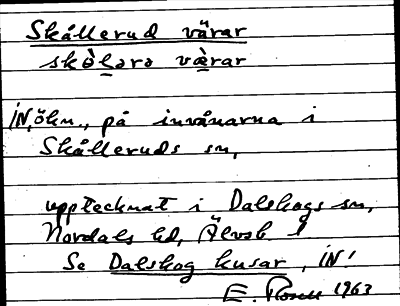 Skållerud värar
skò̀lərə vàrar
IN, ökn., på invånarna i
Skålleruds sn,
upptecknat i Dalskogs sn,
Nordals hd, Älvsb. l
Se Dalskog kusar, IN!
E. Rosell 1963